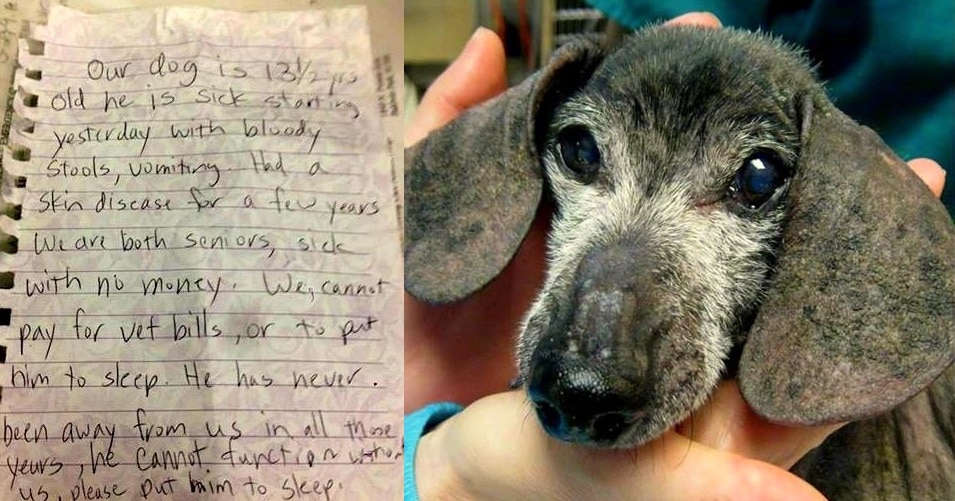 Our dog is 13½ yrs
old he is sick starting
yesterday with bloody
stools, vomiting. Had a
skin disease for a few years
We are both seniors, sick
with no money. We, cannot
pay for vet bills, or to put
him to sleep. He has never.
been away from us in all those
years, he cannot function
us, please put him to sleep.